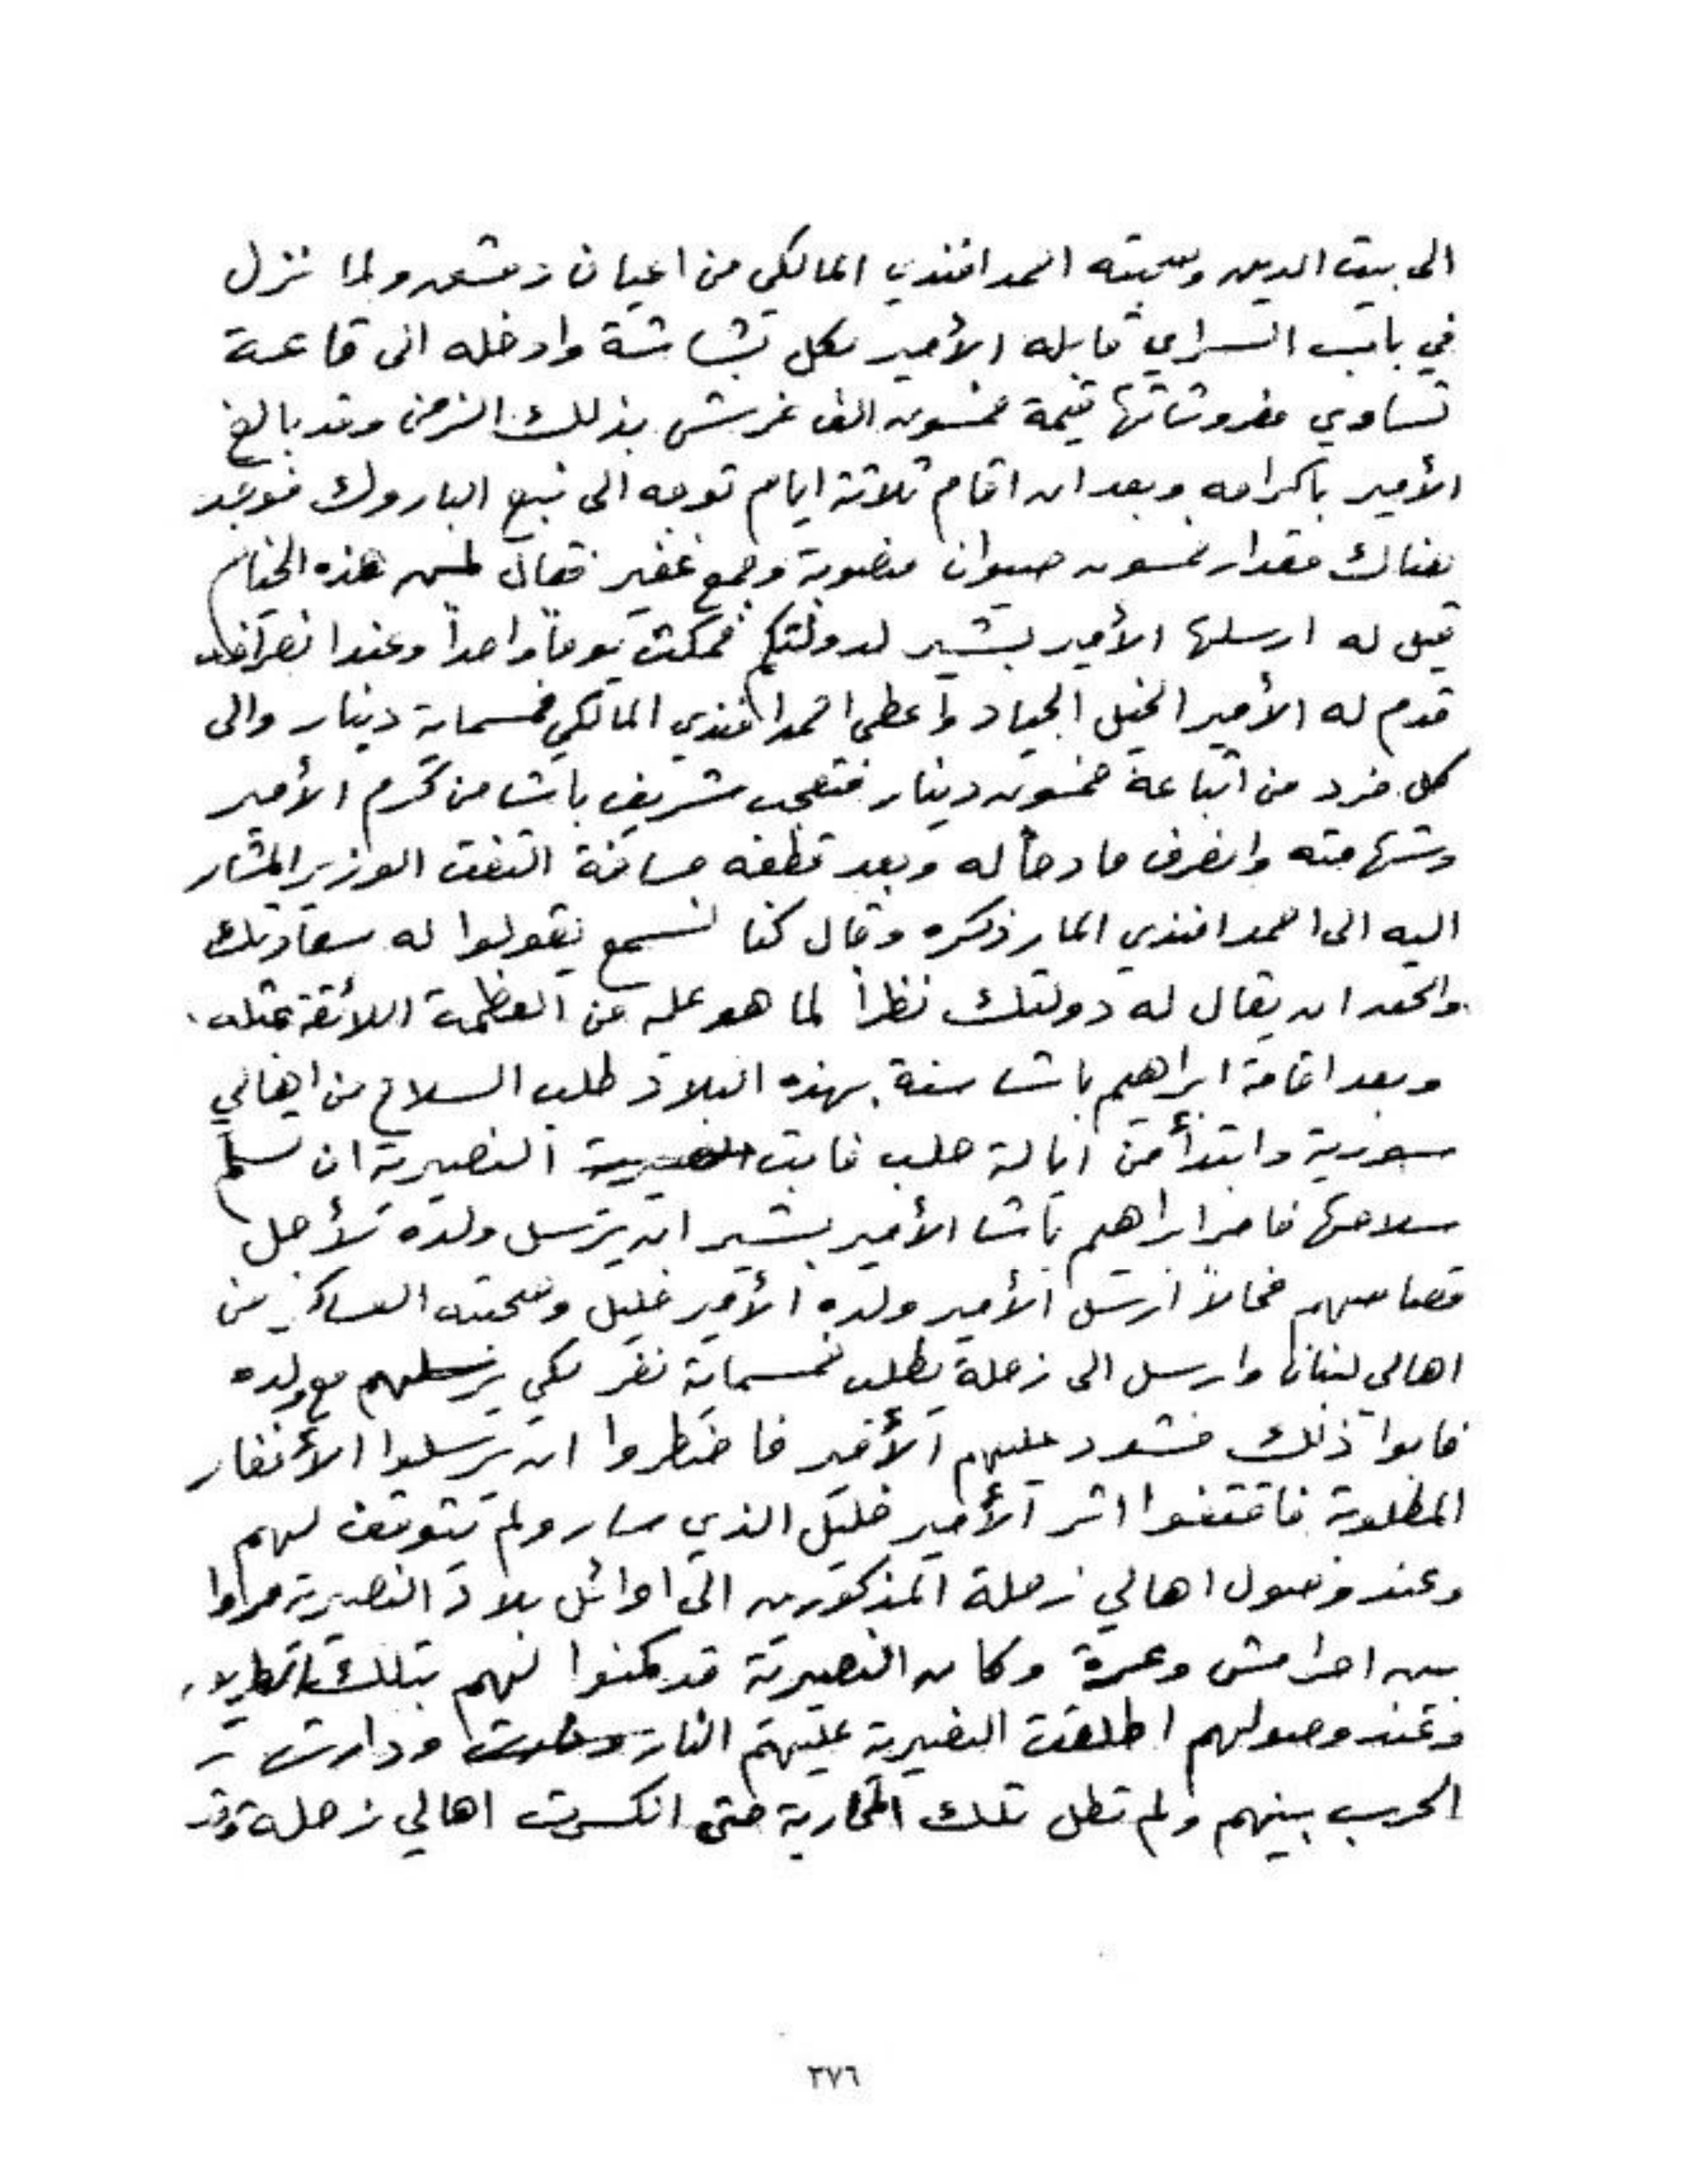 الى بيت الدين وصحبته احمد افندي المالكي من اعيان دمشق ولما نزل
في باب السراي قابله الأمير بكل بشاشة وادخله الى قاعة
تساوي مفروشاتها قيمة خمسون الف غرش بذلك الزمن وقد بالغ
الأمير باكرامه وبعد ان اقام ثلاثة ايام توجه الى نبع الباروك فوجد
هناك مقدار خمسون صيوان منصوبة وجمع غفير فقال لمن هذه الخيام
قيل له ارسلها الأمير بشير لدولتكم فمكث يوماً واحداً وعند انصرافه
قدم له الأمير الخيل الجياد واعطى احمد افندي المالكي خمسماية دينار والى
كل فرد من اتباعه خمسون دينار فتعجب شريف باشا من كرم الأمير
وشهامته وانصرف مادحاً له وبعد قطعه مسافة التفت الوزير المشار
اليه الى احمد افندي المار ذكره وقال كنا نسمع يقولوا له سعادتك
والحق ان يقال له دولتك نظراً لما هو عليه من العظمة اللائقة بمثله .
وبعد اقامة ابراهيم باشا سنة بهذه البلاد طلب السلاح من اهالي
سورية وابتدأ من ايالة حلب فابت النصيرية ان تسلم
سلاحها فامر ابراهيم باشا الأمير بشير ان يرسل ولده لأجل
قصاصهم فحالاً ارسل الأمير ولده الأمير خليل وصحبته العساكر من
اهالي لبنان وارسل الى زحلة يطلب خمسماية نفر لكي يرسلهم مع ولده
فابوا ذلك فشدد عليهم الأمير فاضطروا ان يرسلوا الأنفار
المطلوبة فاقتفوا اثر الأمير خليل الذي سار ولم يتوقف لهم
وعند وصول اهالي زحلة المذكورين الى اوائل بلاد النصيرية مروا
بين احرامش وعرة وكان النصيرية قد كمنوا لهم بتلك
وعند وصولهم اطلقت النصيرية عليهم النار ودارت
الحرب بينهم ولم تطل تلك المحاربة حتى انكسرت اهالي زحلة وقد
٣٧٦